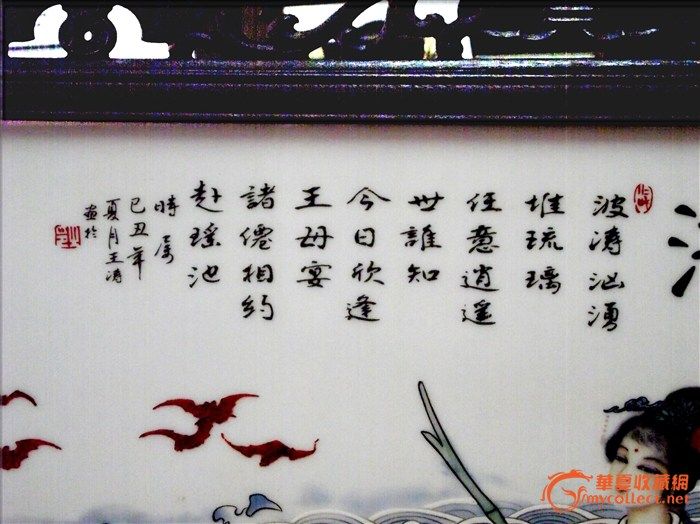 波涛汹湧
堆琉璃
任意逍遥
世誰知
今日欣逢
王母宴
諸僊相約
赴瑤池
時属
己丑年
夏月王涛
画於
華夏收藏網
mycollect.net